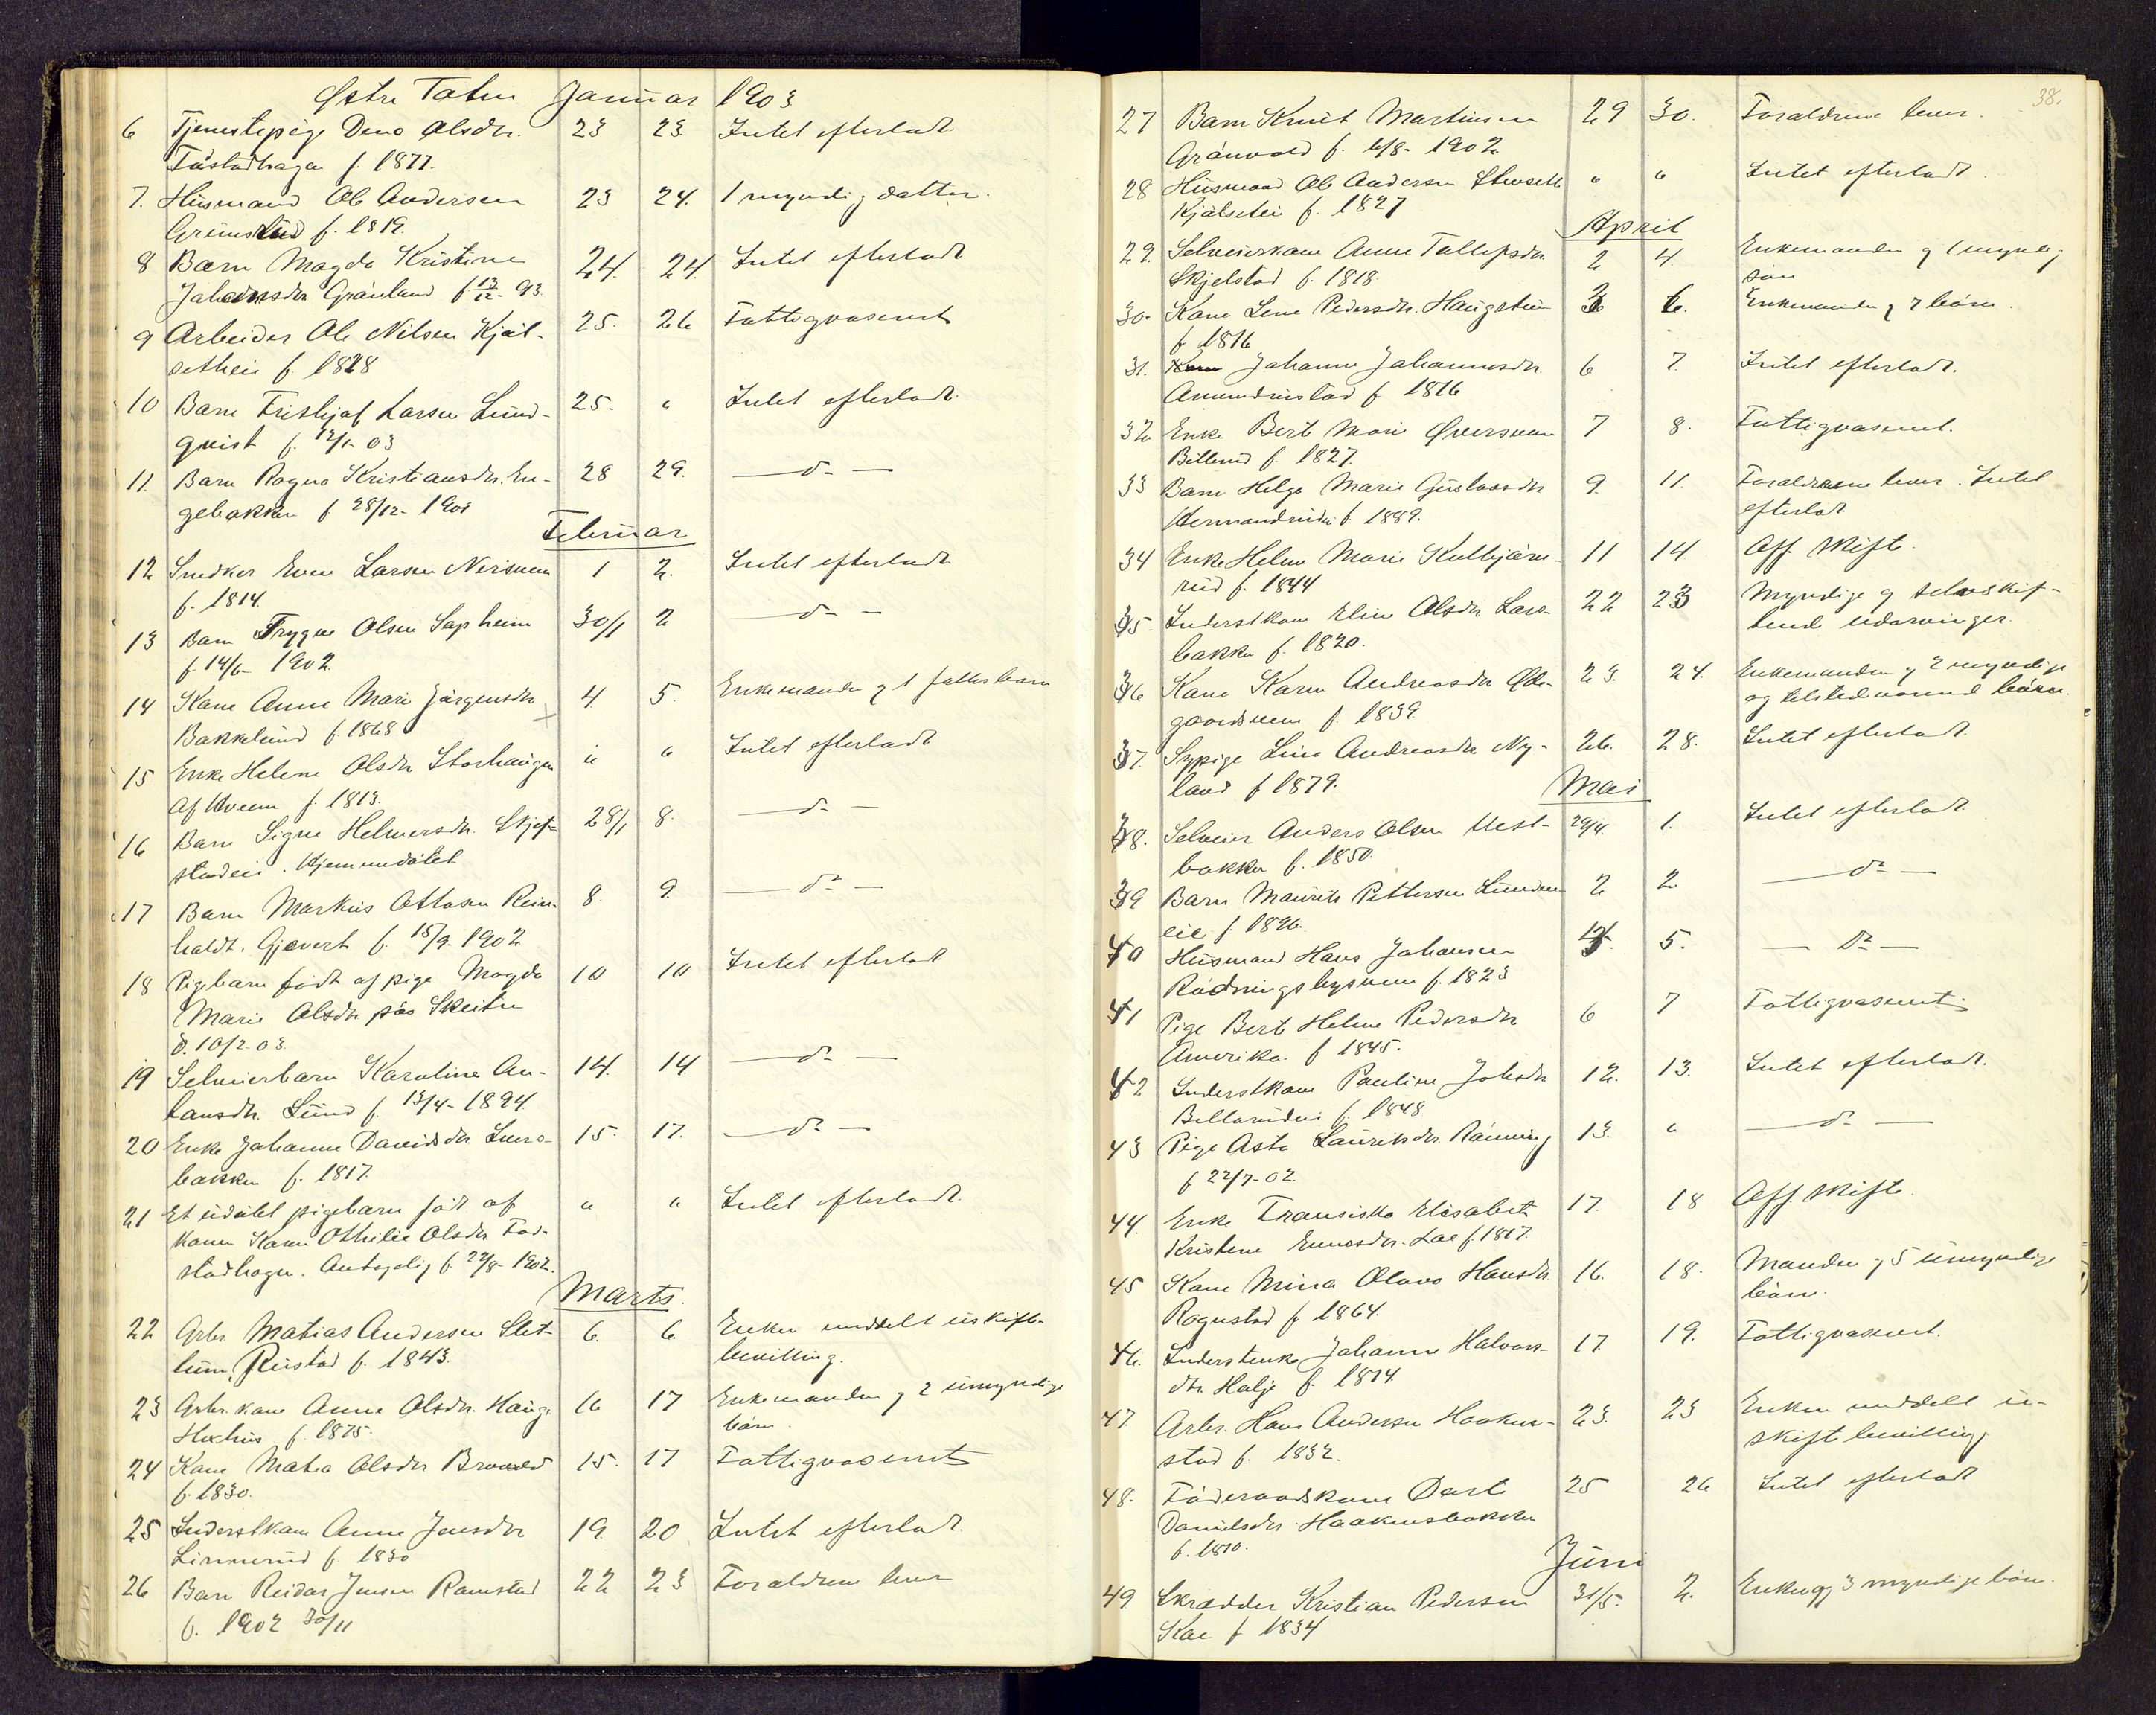 Østre Toten Januar 1903
6 Tjenestepige Dena Olsdtr. 23 23 Intet efterladt
Tøstadhagen f. 1877.
7. Husmand Ole Andersen 23 24. 1 myndig datter.
Grimsrud f. 1819.
8 Barn Magda Kristine 24. 24. Intet efterladt
Johansdtr Grønland f 12/12- 93.
9 Arbeider Ole Nilsen Kjøl- 25. 26 Fattigvæsenet
setheie f. 1828
10 Barn Fritjof Larsen Lund- 25. " Intet efterladt.
qvist f. 12/1- 03
11. Barn Ragna Kristiansdtr. En- 28 29. — do —
gebakken f 28/12- 1901
Februar
12 Snedker Even Larsen Nersveen 1 2. Intet efterladt
f. 1814.
13 Barn Trygve Olsen Sapheim 30/1 2 — do —
f. 14/6- 1902.
14 Kone Anne Marie Jørgensdtr 4. 5. Enkemanden og 1 fællesbarn
Bakkelund f. 1868
15 Enke Helene Olsdtr Storhaugen " " Intet efterladt
af Hveem f. 1813.
16 Barn Signe Helmersdtr. Skjel- 28/1 8. — do —
stadeie. Hjemmedøbt
17 Barn Markus Ottosen Rein- 8. 9. — do —
holdt. Gjøvert f. 15/9- 1902
18 Pigebarn født af pige Magda 10 10 Intet efterladt
Marie Olsdtr paa Skeiten
d. 10/2- 03.
19 Selveierbarn Karoline An- 14. 14 — do —
tonsdtr. Lund f. 13/4- 1894
20 Enke Johanne Davidsdtr Lura- 15. 17. — do —
bakken f. 1817.
21 Et udøbt pigebarn født af " " Intet efterladt.
kone Karen Othilie Olsdtr Tø-
stadhagen. Antagelig f. 22/8- 1902.
Marts.
22 Arbr. Matias Andersen Slet- 6. 6. Enken meddelt uskifte-
tum, Rustad f. 1843. bevilling.
23 Arbr. kone Anne Olsdtr. Haug 16 17 Enkemanden og 2 umyndige
Hexhus f. 1875. børn.
24 Kone Matea Olsdtr Bro 15. 17 Fattigvæsenet
f. 1830.
25 Inderstkone Anne Jensdtr 19. 20 Intet efterladt.
Linnerud f. 1830
26 Barn Reidar Jensen Ramstad 22 23 Forældrene lever
f. 1902 30/11
38.
27 Barn Knut Martinsen 29 30. Forældrene lever.
Grønvold f. 6/8- 1902
28 Husmand Ole Andersen " " Intet efterladt.
Kjølseteie f. 1827
April
29. Selveierkone Anne Tollefsdtr 2 4. Enkemanden og 1 myndig
Skjelstad f. 1818. søn
30. Kone Lene Pedersdtr. Haugstuen 3 6. Enkemanden og 7 børn.
f. 1816
31. Johanne Johannesdtr. 6 7. Intet efterladt.
Amundrustad f 1816
32 Enke Berte Marie Øversveen 7 8. Fattigvæsenet.
Billerud f. 1827.
33 Barn Helga Marie Gustavsdtr 9. 11. Forældrene lever. Intet
Hermandrudei f 1889. efterladt
34 Enke Helene Marie Kolbjørns- 11 14. Off. skifte.
rud f. 1844
35. Inderstkone Eline Olsdtr Lars- 22 23 Myndige og selvskif-
bakken f. 1820. tende udarvinger.
36 Kone Karen Andreasdtr Øde- 23. 24. Enkemanden og 2 myndige
gaardsveen f. 1839. og tilstedværende børn.
37. Sypige Lina Andreasdtr Ny- 26. 28. Intet efterladt.
land f 1879.
Mai
38. Selveier Anders Olsen Vest- 29/4. 1. Intet efterladt.
bakken f. 1850.
39 Barn Maurits Pettersen Lunden- 2 2 — do —
eie f. 1896.
40 Husmand Hans Johansen 4. 5. — Do —
Rødningsbysveen f. 1823
41 Pige Berte Helene Pedersdtr 6 7 Fattigvæsenet
Amerika. f 1845.
42 Inderstkone Pauline Johsdtr 12. 13. Intet efterladt.
Billerudei f. 1848
43 Pige Asta Lauritsdtr. Rønning 13. " — do —
f 22/7- 02.
44. Enke Fransiska Elisabeth 17. 18 Off skifte.
Kristine Ennosdtr. Loe f. 1817.
45 Kone Mina Olava Hansdtr. 16. 18. Manden og 5 umyndige
Rognstad f. 1864. børn.
46. Inderstenke Johanne Halvors- 17. 19. Fattigvæsenet.
dtr. Holje f. 1814.
47. Arbr. Hans Andersen Haaken- 23. 23 Enken meddelt u-
stad f. 1832. skiftebevilling
48. Føderaadskone Dorte 25 26 Intet efterladt
Danielsdtr. Haakensbakken
f. 1810.
Juni
49 Skrædder Kristian Pedersen 31/5. 2. Enken og 3 myndige børn.
Kae f 1834